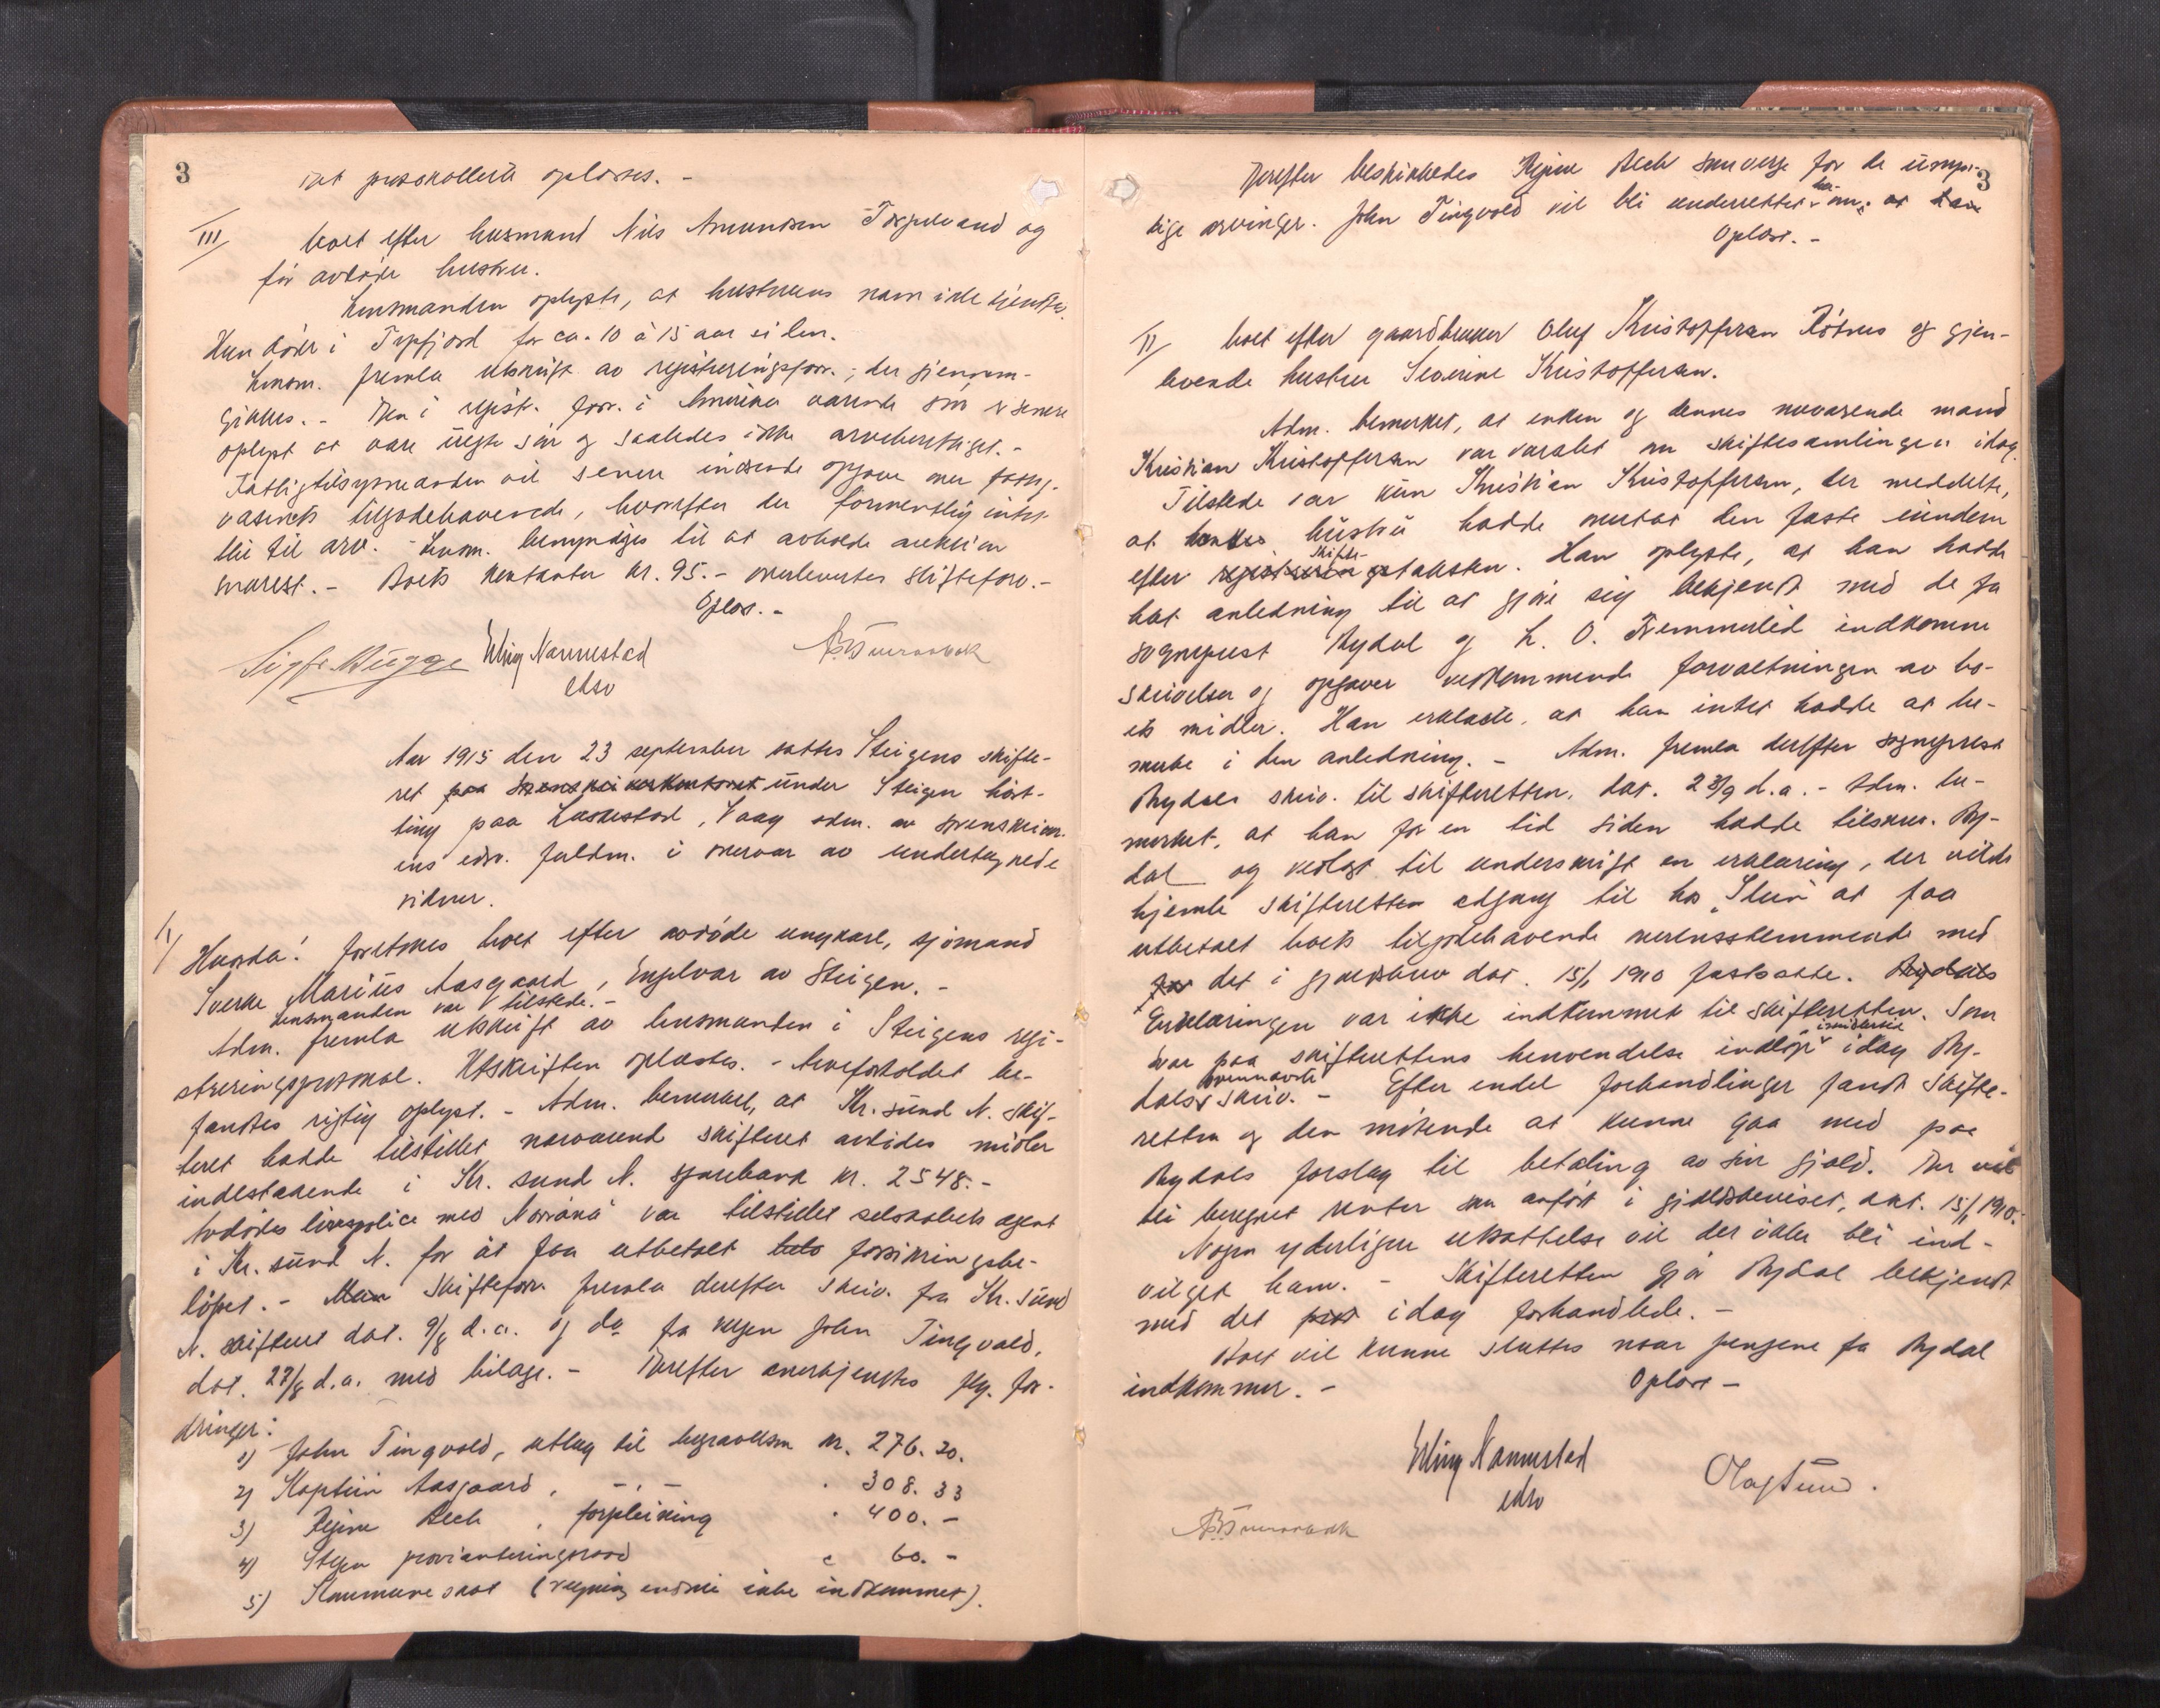 3
Det protokollerte oplæstes. -
III/ Boet efter husmand Nils Amundsen Torpelvand og
før avdøde hustru.
Lensmanden oplyste, at hustruens navn ikke kjendtes.
Hun døde i Tysfjord for ca. 10 à 15 aar siden.
Lensm. fremla utskrift av registreringsforr.; der gjennem-
gikkes. - Den i regist. forr. i Amerika værende søn er senere
oplyst at være uegte søn og saaledes ikke arveberettiget. -
Fattigtilsynsmanden vil senere indsende opgave over fattig-
væsenets tilgodehavende, hvorefter der formentlig intet
blir til arv. - Lensm. bemyndiges til at avholde auktion
snarest. - Boets kontanter kr. 95.- overlevertes skifteforv. -
Oplæst. -
Sigf. Bugge Erling Nannestad
edsv
Aar 1915 den 23 september sattes Steigens skifte-
ret paa Sorenskriverkontoret under Steigen høst-
ting paa Laskestad, Vaag adm. av sorenskrive-
rens edsv. fuldm. i overvær av undertegnede
vidner.
I/ Hvorda! foretokes boet efter avdøde ungkarl, sjømand
Sverre Marius Aasgaard, Engelvær av Steigen. -
Lensmanden var tilstede. -
Adm. fremla utskrift av lensmanden i Steigens regi-
streringsprotokol. Utskriften oplæstes. - Arveforholdet be-
fandtes rigtig oplyst. - Adm. bemerket, at Kr.sund N. skif-
teret hadde tilstillet nærværende skifteret avdødes midler
indestaaende i Kr.sund N. sparebank kr. 2548.-
Avdødes livspolice med "Norrøna" var tilstillet selskapets agent
i Kr.sund N. for at faa utbetalt forsikringsbe-
løpet. - Skifteforv. fremla derefter skriv. fra Kr.sund
N. skifteret dat. 9/8 d.a. og do fra vergen John Tingvold,
dat. 27/8 d.a. med bilage. - Derefter anerkjendtes flg. for-
dringer:
1) John Tingvold, utlæg til begravelsen kr. 276.20.
2) Kaptein Aasgaard, - " - " 308.33
3) Regine Bech, forpleining " 400.-
4) Steigen provianteringsraad " 60.-
5) Kommuneskat (regning endnu ikke indkommet).
3
Derefter beskikkedes Regine Bech som verge for de umyn-
dige arvinger. John Tingvold vil bli underrettet her-
om.
Oplæst. -
II/ Boet efter gaardbruker Oluf Kristoffersen Røtnes og gjen-
levende hustru Severine Kristoffersen.
Adm. bemerket, at enken og dennes nuværende mand
Kristian Kristoffersen var varslet om skiftesamlingen idag.
Tilstede var kun Kristian Kristoffersen, der meddelte,
at hustru hadde overtat den faste eiendom
efter skifte-
taksten. Han oplyste, at han hadde
hat anledning til at gjøre sig bekjendt med de fra
sogneprest Rydal og L. O. Tremmerlid indkomne
skrivelser og opgaver vedkommende forvaltningen av bo-
ets midler. Han erklærte, at han intet hadde at be-
merke i den anledning. - Adm. fremla derefter sogneprest
Rydals skriv. til skifteretten, dat. 23/9 d.a. - Adm. be-
merket, at han for en tid siden hadde tilskrev. Ry-
dal og vedlagt til underskrift en erklæring, der vilde
hjemle skifteretten adgang til hos "Stein" at faa
utbetalt boets tilgodehavende overensstemmende med
det i gjeldsbrev dat. 15/1 1910 fastsatte.
Erklæringen var ikke indkommet til skifteretten. Som
svar paa skifterettens henvendelse indløp imidlertid idag Ry-
dals ovennævnte skriv. - Efter endel forhandlinger fandt skifte-
retten og den møtende at kunne gaa med paa
Rydals forslag til betaling av sin gjæld. Der vil
bli beregnet renter som anført i gjeldsbeviset, dat. 15/1 1910.
Nogen yderligere utsættelse vil der ikke bli ind-
vilget ham. - Skifteretten gjør Rydal bekjendt
med det idag forhandlede. -
Boet vil kunne sluttes naar pengene fra Rydal
indkommer. -
Oplæst -
Erling Nannestad
edsv
Olaf Sund.